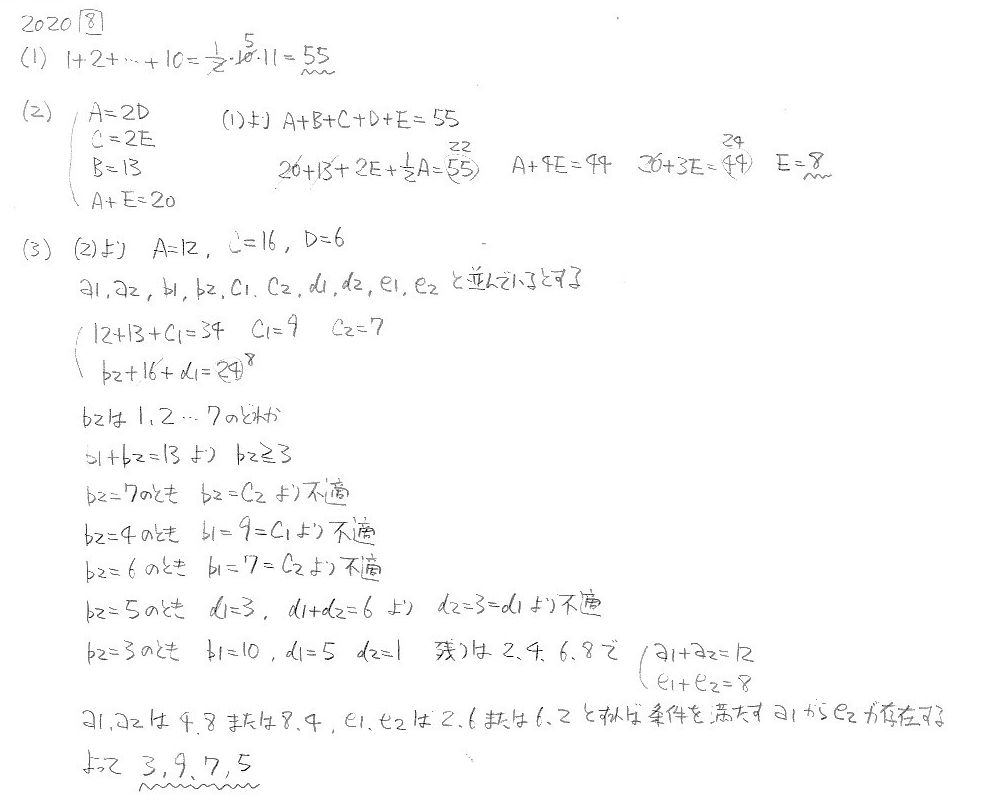 2020 8
(1) 1+2+…+10=1/2・10・11=55 5
(2) A=2D (1)より A+B+C+D+E=55
C=2E
B=13 26+13+2E+1/2A=55 22 A+4E=44 20+3E=44 24 E=8
A+E=20
(3) (2)より A=12, C=16, D=6
a1,a2,b1,b2,c1,c2,d1,d2,e1,e2 と並んでいるとする
12+13+c1=34 c1=9 c2=7
b2+16+d1=24 8
b2は 1,2…7のどれか
b1+b2=13 より b2≧3
b2=7のとき b2=c2 より不適
b2=4のとき b1=9=c1より不適
b2=6のとき b1=7=c2より不適
b2=5のとき d1=3, d1+d2=6 より d2=3=d1より不適
b2=3のとき b1=10, d1=5 d2=1 残りは 2,4,6,8で a1+a2=12
e1+e2=8
a1,a2は 4,8 または 8,4, e1,e2は 2,6 または 6,2 とすれば 条件を満たす a1から e2が存在する
よって 3,9,7,5